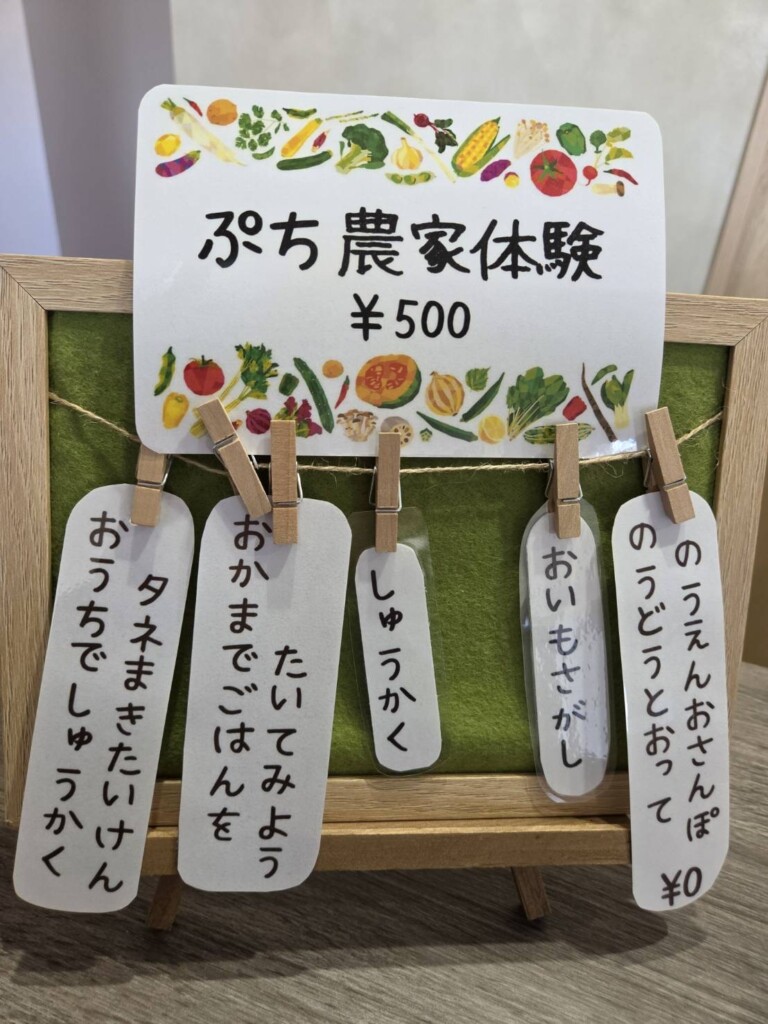 ぷち農家体験
¥500
おうちでしゅうかく
タネまきたいけん
おかまでごはんを
たいてみよう
しゅうかく
おいもさがし
のうどうとおって
のうえんおさんぽ
¥0